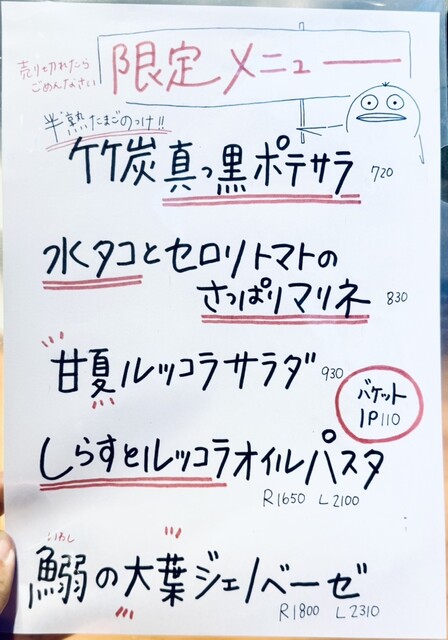 売り切れたら
ごめんなさい
限定メニュー
半熟たまごのっけ!!
竹炭真っ黒ポテサラ 720
水タコとセロリトマトの
さっぱりマリネ 830
甘夏ルッコラサラダ 930
バケット
1P110
しらすとルッコラオイルパスタ
R1650 L2100
いわし
鰯の大葉ジェノベーゼ
R1800 L2310